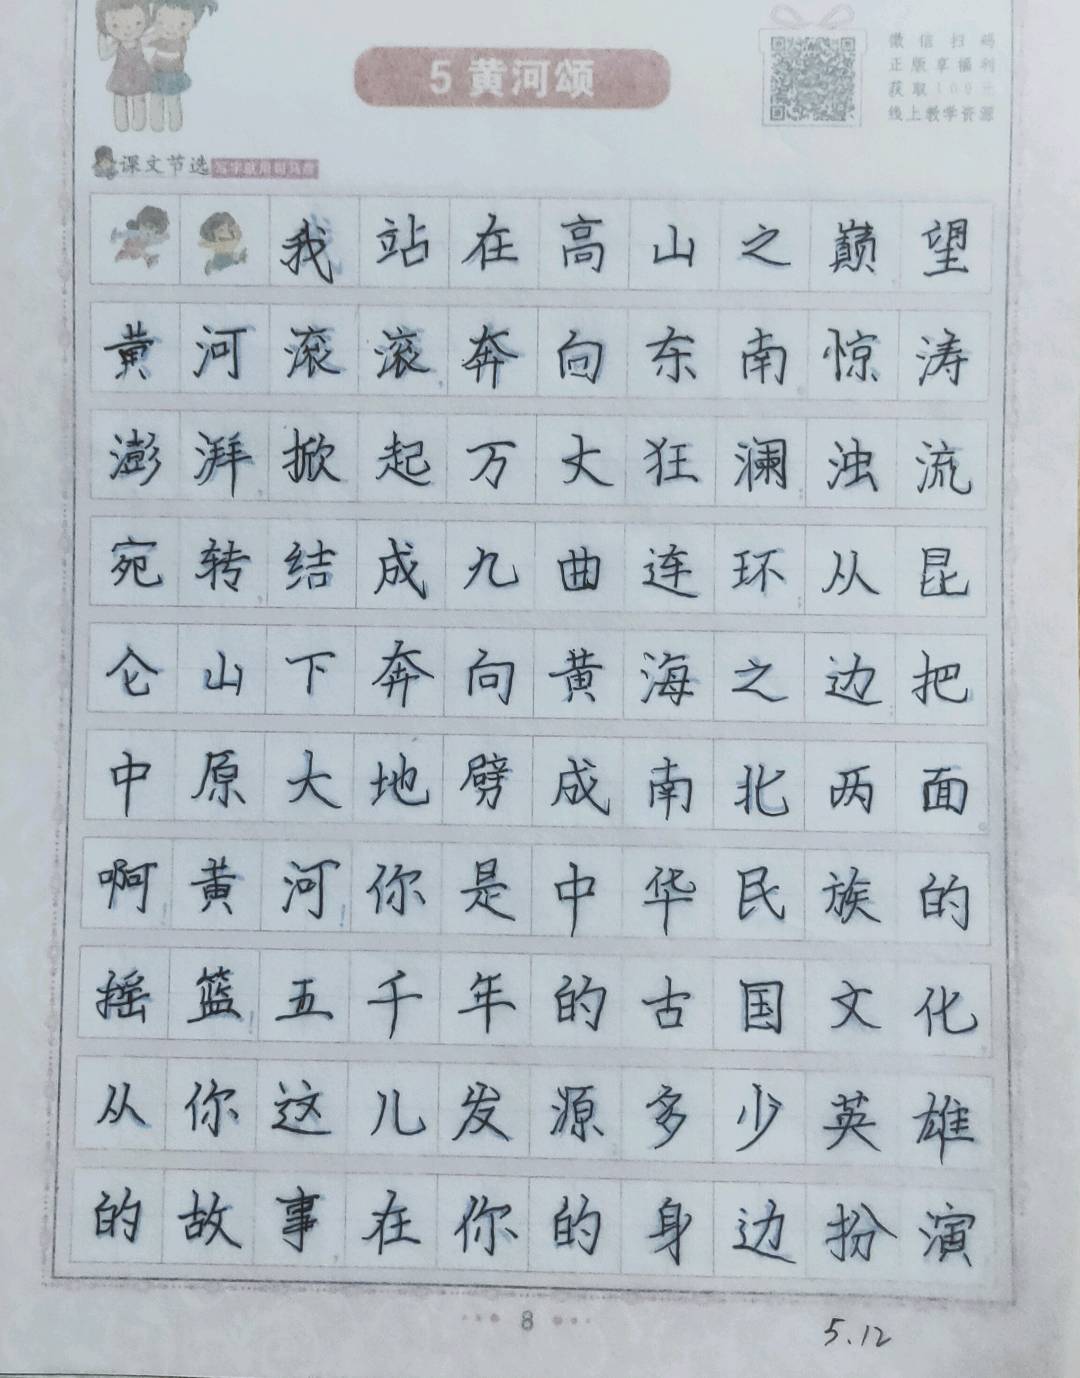 5 黄河颂
微信扫码
正版享福利
获取100元
线上教学资源
课文节选
我站在高山之巅望
黄河滚滚奔向东南惊涛
澎湃掀起万丈狂澜浊流
宛转结成九曲连环从昆
仑山下奔向黄海之边把
中原大地劈成南北两面
啊黄河！你是中华民族的
摇篮！五千年的古国文化
从你这儿发源多少英雄
的故事在你的身边扮演
8
5.12